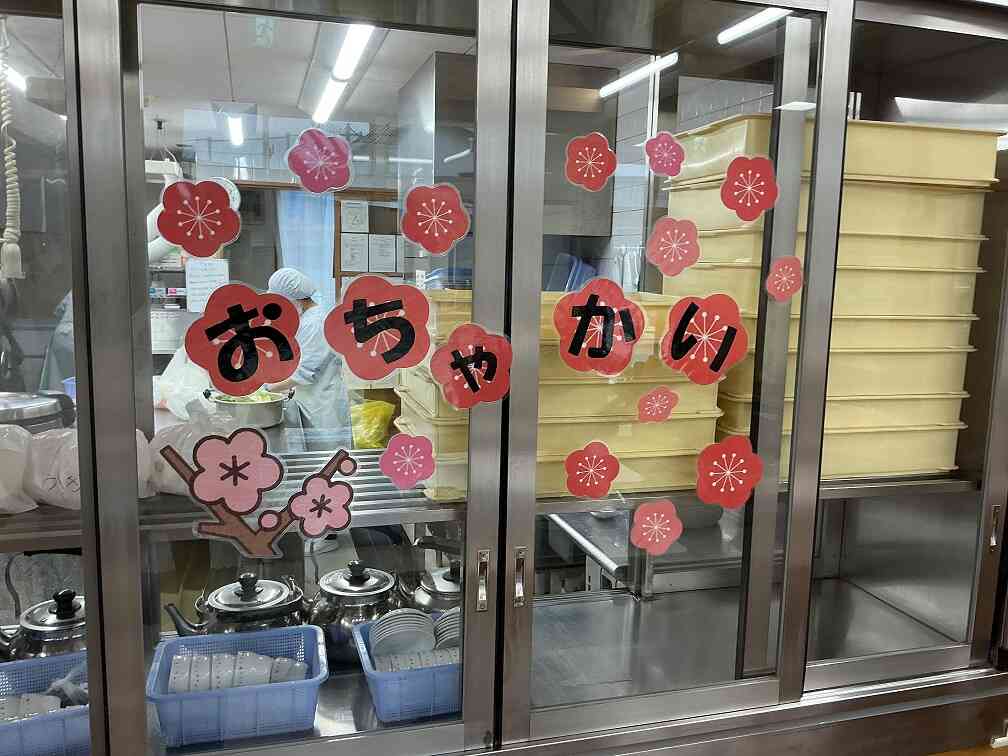 おちゃかい